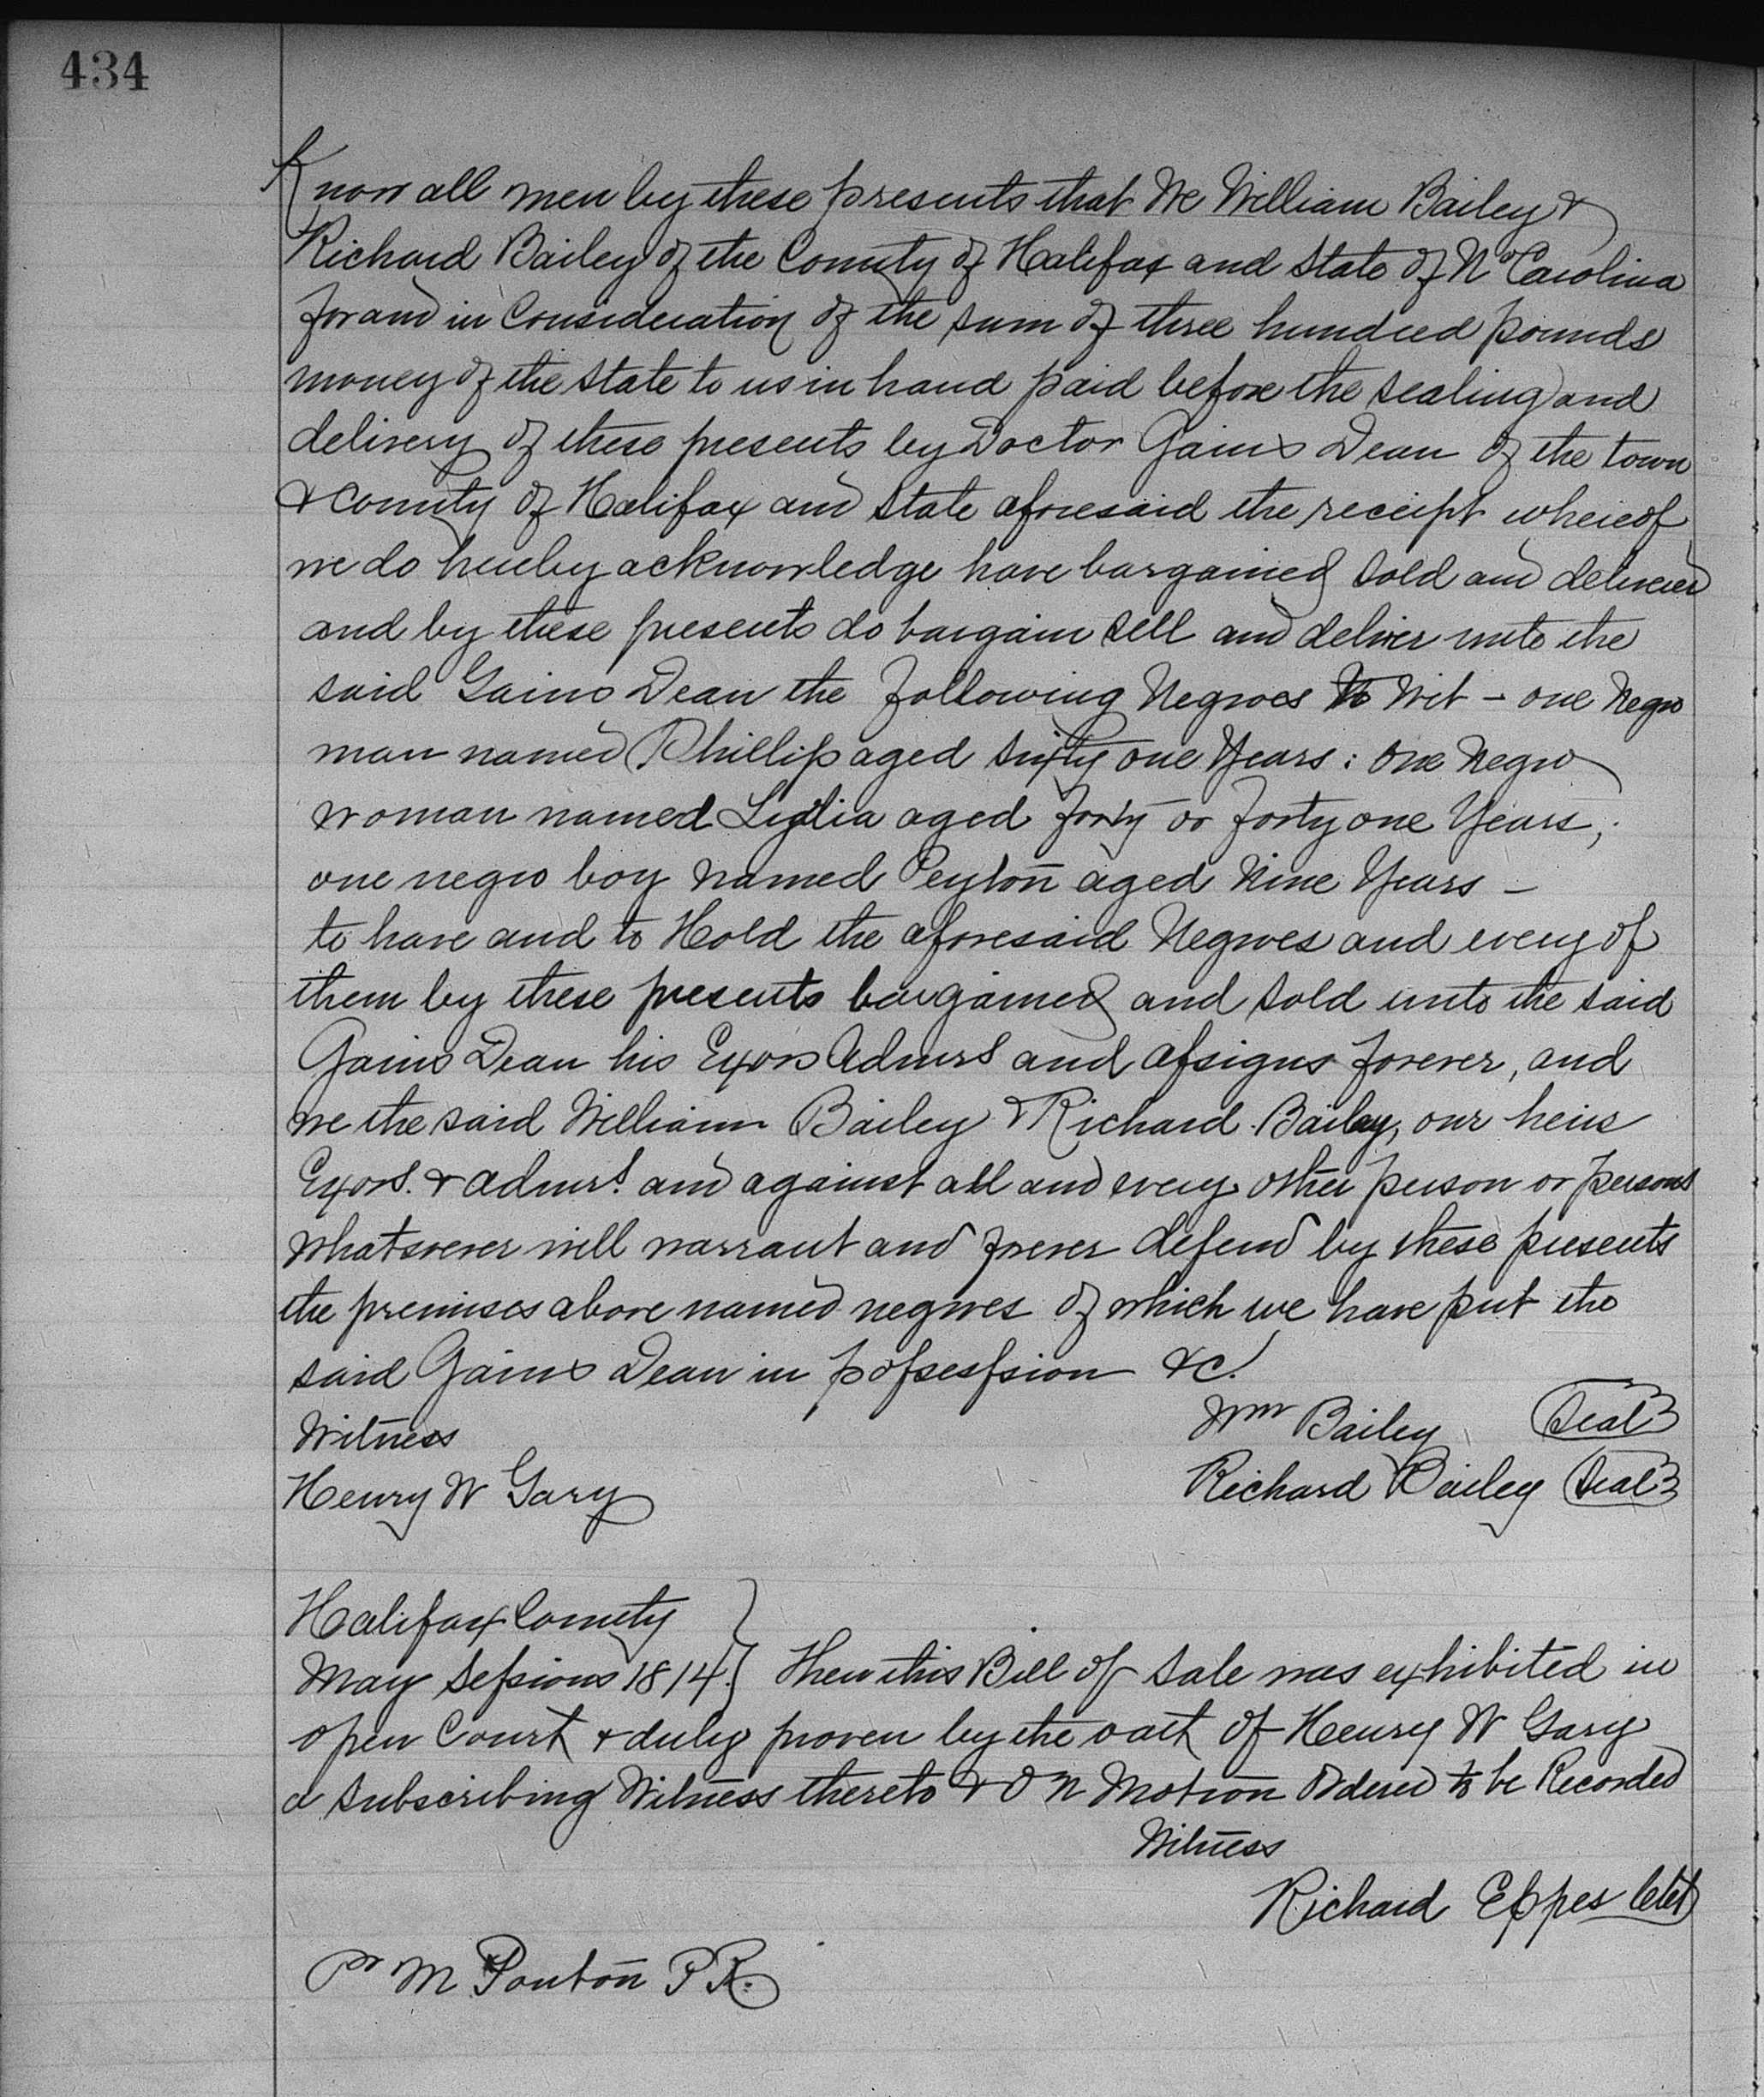 434
Know all men by these presents that We William Bailey &
Richard Bailey of the County of Halifax and State of No Carolina
for and in Consideration of the sum of three hundred pounds
money of the state to us in hand paid before the sealing and
delivery of these presents by Doctor Gains Dean of the town
& County of Halifax and State aforesaid the receipt whereof
we do hereby acknowledge have bargained sold and delivered
and by these presents do bargain sell and deliver unto the
said Gains Dean the following Negroes to Wit - one Negro
man named Phillip aged sixty one Years: one Negro
woman named Lydia aged forty or forty one Years;
one negro boy named Peyton aged Nine Years -
to have and to Hold the aforesaid Negroes and every of
them by these presents bargained and sold unto the said
Gains Dean his Exors Admrs and assigns forever, and
we the said William Bailey & Richard Bailey, our heirs
Exors. & admrs. and against all and every other person or persons
whatsoever will warrant and forever defend by these presents
the premises above named negroes of which we have put the
said Gains Dean in possession &c.
Witness Wm Bailey (Seal)
Henry W Gary Richard Bailey (Seal)
Halifax County
May Sessions 1814. } Then this Bill of Sale was exhibited in
open Court & duly proven by the oath of Henry W Gary
a subscribing Witness thereto & On Motion Ordered to be Recorded
Witness
Richard Eppes Clk
Pr M Ponton P R.